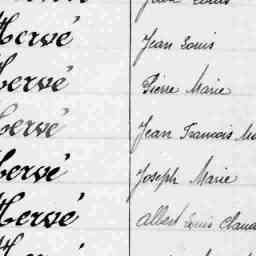 Jean Louis
Hervé Jean Louis
Hervé Pierre Marie
Hervé Jean François
Hervé Joseph Marie
Hervé Albert Louis